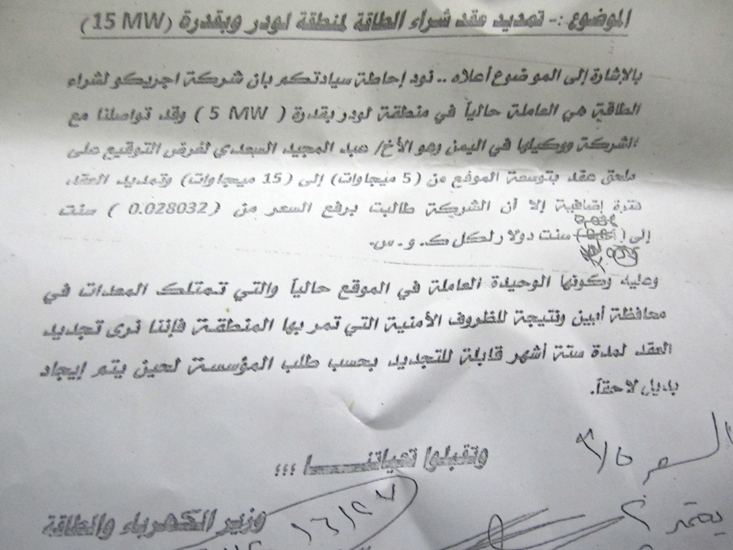 الموضوع :- تمديد عقد شراء الطاقة لمنطقة لودر وبقدرة (15 MW)
بالإشارة إلى الموضوع أعلاه .. نود إحاطة سيادتكم بان شركة اجريكو لشراء
الطاقة هي العاملة حالياً في منطقة لودر بقدرة ( 5 MW ) وقد تواصلنا مع
الشركة ووكيلها في اليمن وهو الأخ/ عبد المجيد السعدي لغرض التوقيع على
ملحق عقد بتوسعة الموقع من (5 ميجاوات) إلى (15 ميجاوات) وتمديد العقد
فترة إضافية إلا أن الشركة طالبت برفع السعر من (0.028032 ) سنت
إلى ( ) سنت دولار لكل ك. و. س.
وعليه وكونها الوحيدة العاملة في الموقع حالياً والتي تمتلك المعدات في
محافظة أبين ونتيجة للظروف الأمنية التي تمر بها المنطقة فإننا نرى تجديد
العقد لمدة ستة أشهر قابلة للتجديد بحسب طلب المؤسسة لحين يتم إيجاد
بديل لاحقاً.
وتقبلوا تحياتنــــــا ؛؛؛
وزير الكهرباء والطاقة